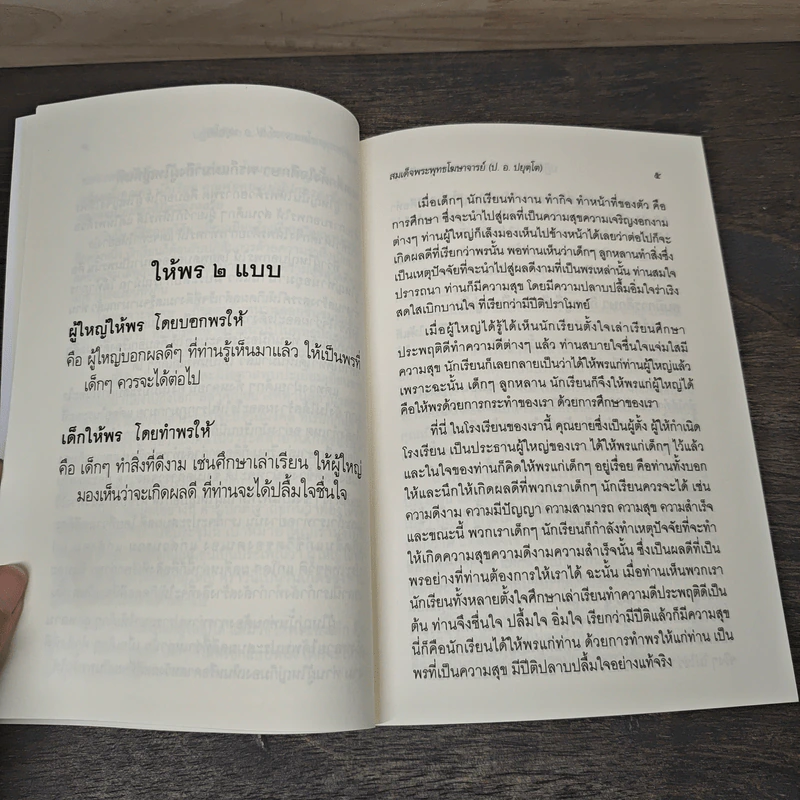 ให้พร ๒ แบบ
ผู้ใหญ่ให้พร โดยบอกพรให้
คือ ผู้ใหญ่บอกผลดีๆ ที่ท่านรู้เห็นมาแล้ว ให้เป็นพรที่
เด็กๆ ควรจะได้ต่อไป
เด็กให้พร โดยทำพรให้
คือ เด็กๆ ทำสิ่งที่ดีงาม เช่นศึกษาเล่าเรียน ให้ผู้ใหญ่
มองเห็นว่าจะเกิดผลดี ที่ท่านจะได้ปลื้มใจชื่นใจ
สมเด็จพระพุทธโฆษาจารย์ (ป. อ. ปยุตฺโต)
๕
เมื่อเด็กๆ นักเรียนทำงาน ทำกิจ ทำหน้าที่ของตัว คือ
การศึกษา ซึ่งจะนำไปสู่ผลที่เป็นความสุขความเจริญงอกงาม
ต่างๆ ท่านผู้ใหญ่ก็เล็งมองเห็นไปข้างหน้าได้เลยว่าต่อไปก็จะ
เกิดผลดีที่เรียกว่าพรนั้น พอท่านเห็นว่าเด็กๆ ลูกหลานทำสิ่งซึ่ง
เป็นเหตุปัจจัยที่จะนำไปสู่ผลดีงามที่เป็นพรเหล่านั้น ท่านสมใจ
ปรารถนา ท่านก็มีความสุข โดยมีความปลาบปลื้มอิ่มใจร่าเริง
สดใสเบิกบานใจ ที่เรียกว่ามีปีติปราโมทย์
เมื่อผู้ใหญ่ได้รู้ได้เห็นนักเรียนตั้งใจเล่าเรียนศึกษา
ประพฤติดีทำความดีต่างๆ แล้ว ท่านสบายใจชื่นใจแจ่มใสมี
ความสุข นักเรียนก็เลยกลายเป็นว่าได้ให้พรแก่ท่านผู้ใหญ่แล้ว
เพราะฉะนั้น เด็กๆ ลูกหลาน นักเรียนก็จึงให้พรแก่ผู้ใหญ่ได้
คือให้พรด้วยการกระทำของเรา ด้วยการศึกษาของเรา
ที่นี่ ในโรงเรียนของเรานี้ คุณยายซึ่งเป็นผู้ตั้ง ผู้ให้กำเนิด
โรงเรียน เป็นประธานผู้ใหญ่ของเรา ได้ให้พรแก่เด็กๆ ไว้แล้ว
และในใจของท่านก็คิดให้พรแก่เด็กๆ อยู่เรื่อย คือท่านทั้งบอก
ให้และนึกให้เกิดผลดีที่พวกเราเด็กๆ นักเรียนควรจะได้ เช่น
ความดีงาม ความมีปัญญา ความสามารถ ความสุข ความสำเร็จ
และขณะนี้ พวกเราเด็กๆ นักเรียนก็กำลังทำเหตุปัจจัยที่จะทำ
ให้เกิดความสุขความดีงามความสำเร็จนั้น ซึ่งเป็นผลดีที่เป็น
พรอย่างที่ท่านต้องการให้เราได้ ฉะนั้น เมื่อท่านเห็นพวกเรา
นักเรียนทั้งหลายตั้งใจศึกษาเล่าเรียนทำความดีประพฤติดีเป็น
ต้น ท่านจึงชื่นใจ ปลื้มใจ อิ่มใจ เรียกว่ามีปีติแล้วก็มีความสุข
นี่ก็คือนักเรียนได้ให้พรแก่ท่าน ด้วยการทำพรให้แก่ท่าน เป็น
พรที่เป็นความสุข มีปีติปลาบปลื้มใจอย่างแท้จริง